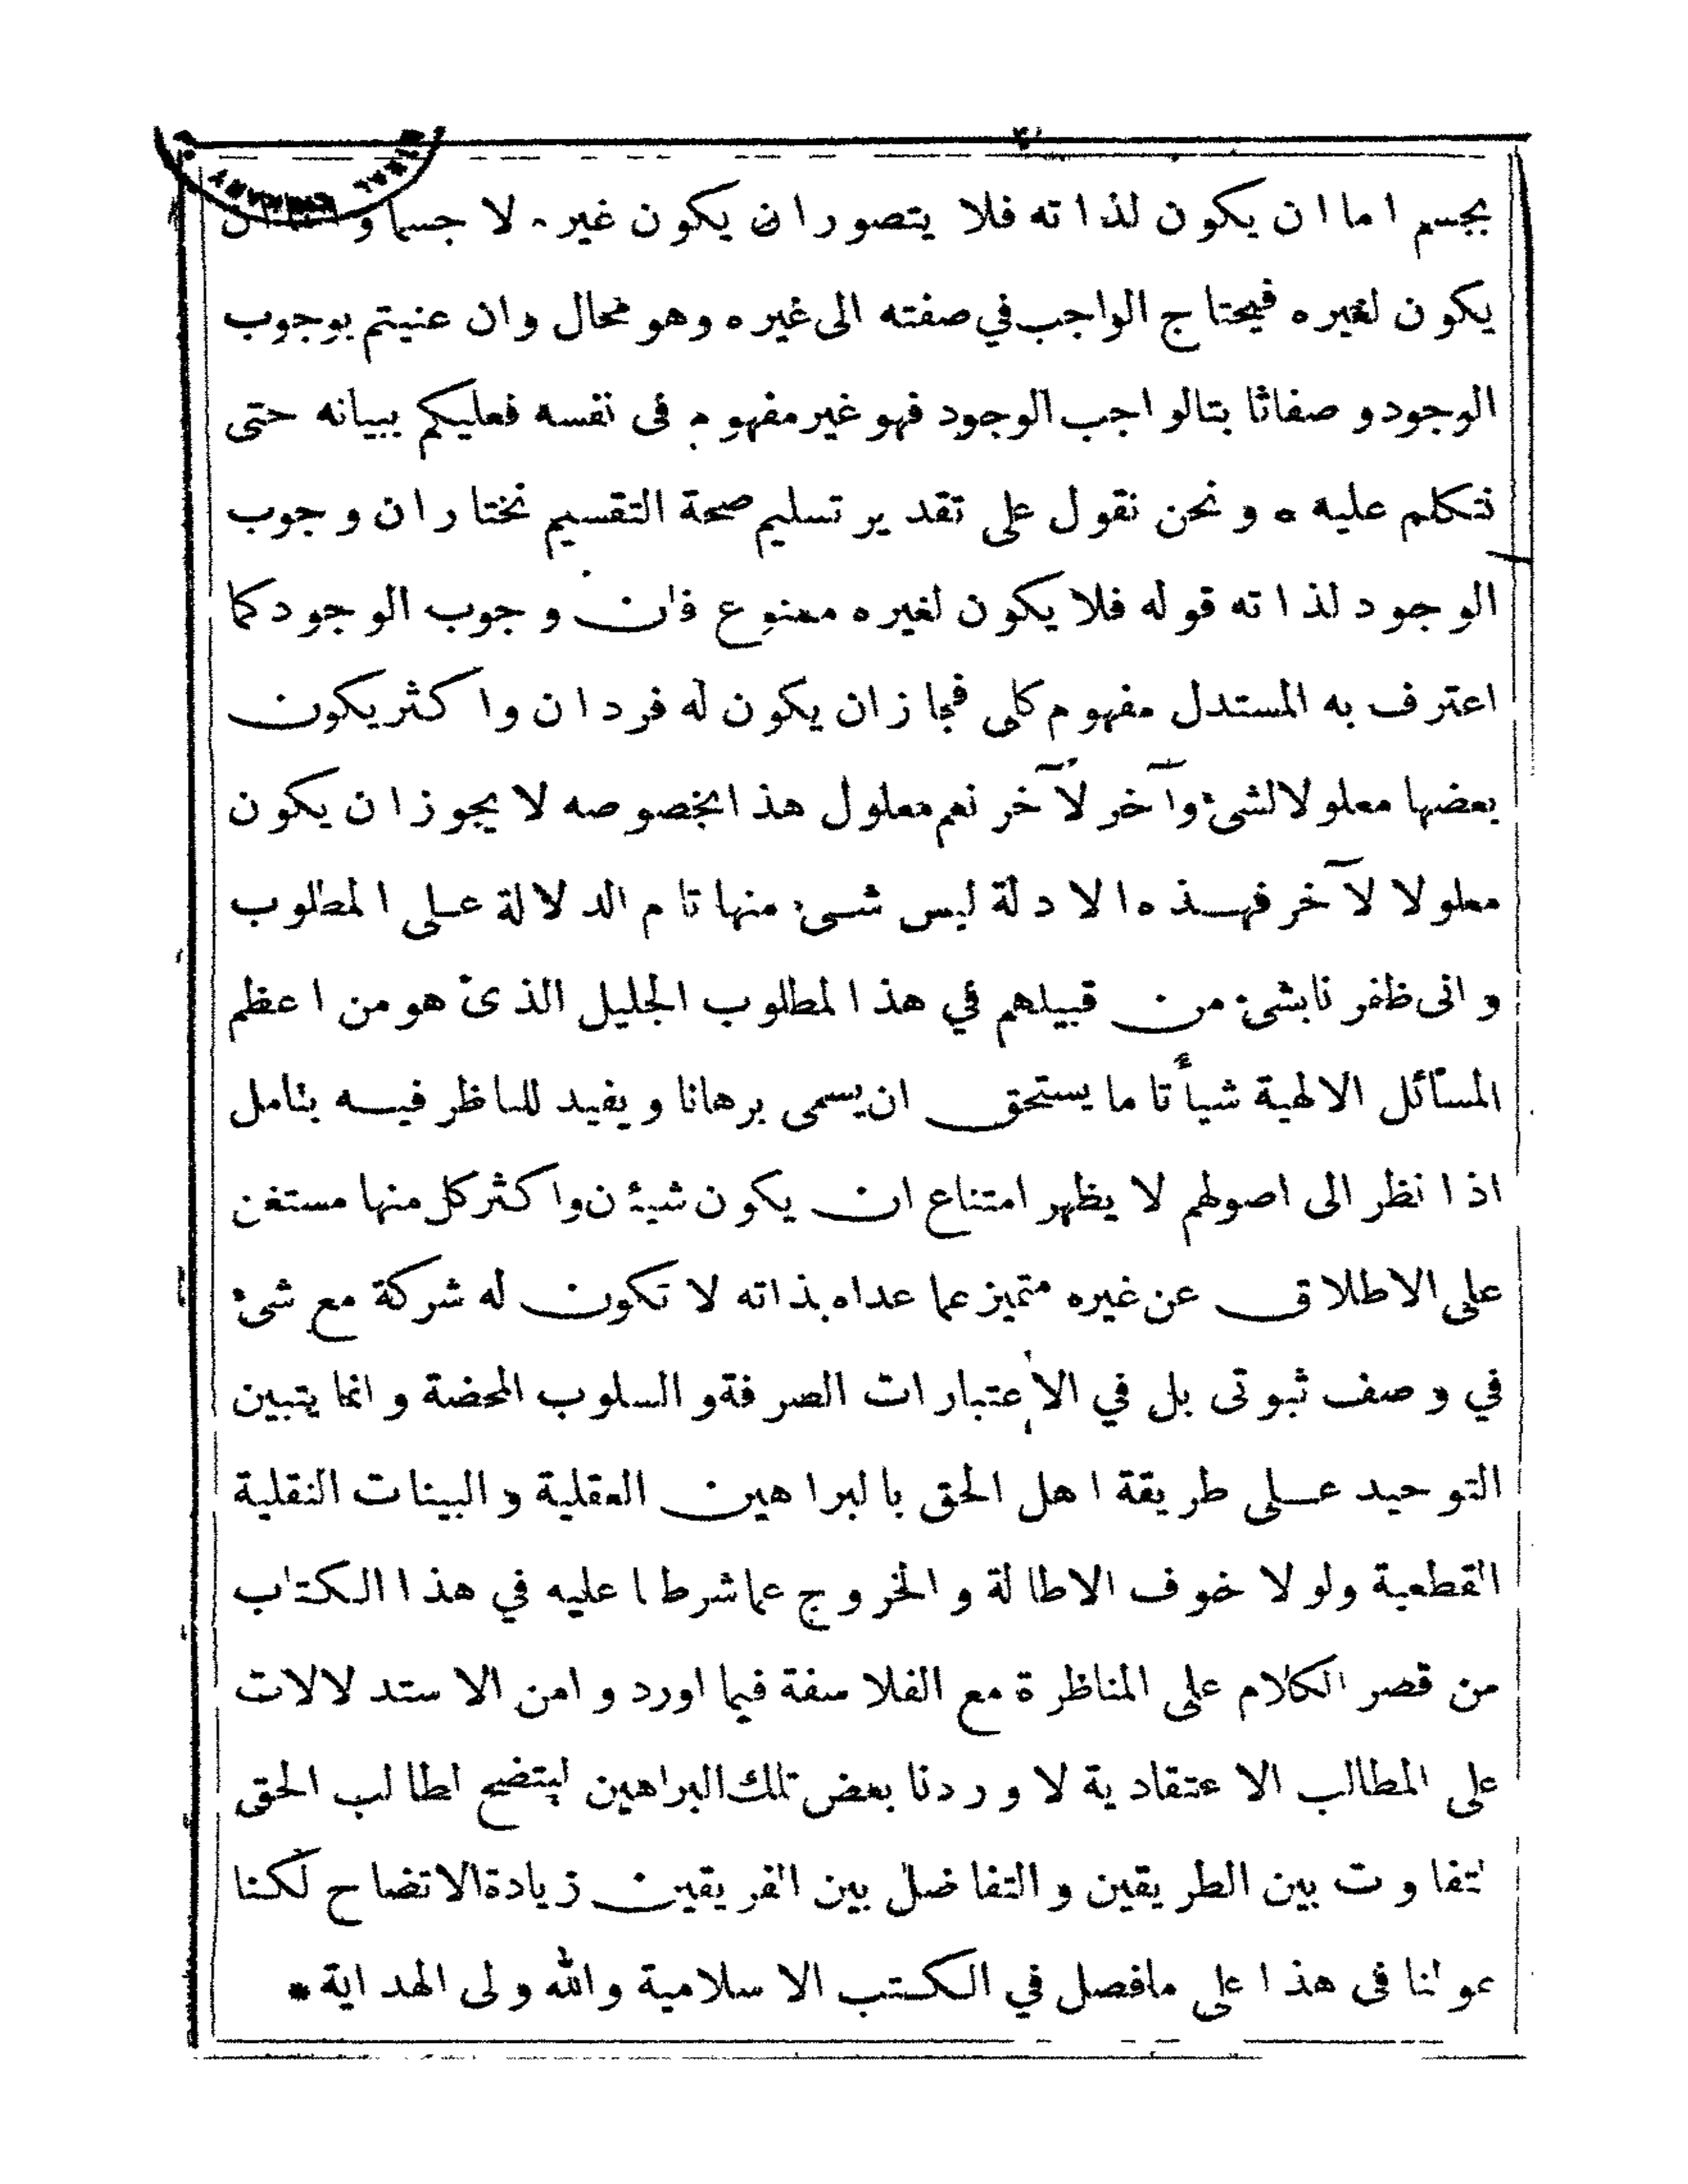 بجسم اما ان يكون لذاته فلا يتصور ان يكون غيره لا جسما و
يكون لغيره فيحتاج الواجب في صفته الى غيره وهو محال وان عنيتم بوجوب
الوجود وصفا ثابتا لواجب الوجود فهو غير مفهوم فى نفسه فعليكم ببيانه حتى
نتكلم عليه ه ونحن نقول على تقدير تسليم صحة التقسيم نختار ان وجوب
الوجود لذاته قوله فلا يكون لغيره ممنوع فان وجوب الوجود كما
اعترف به المستدل مفهوم كلى فجاز ان يكون له فردان واكثر يكون
بعضها معلولا لشئ وآخر لآخر نعم معلول هذا بخصوصه لا يجوز ان يكون
معلولا لآخر فهذه الادلة ليس شئ منها تام الدلالة على المطلوب
وانى ظفرنا بشئ من قبيلهم في هذا المطلوب الجليل الذى هو من اعظم
المسائل الالهية شيأ تاما يستحق ان يسمى برهانا ويفيد للناظر فيه بتأمل
اذا نظر الى اصولهم لا يظهر امتناع ان يكون شيئن واكثر كل منها مستغن
على الاطلاق عن غيره متميز عما عداه بذاته لا تكون له شركة مع شئ
في وصف ثبوتى بل في الاعتبارات الصرفة والسلوب المحضة وانما يتبين
التوحيد على طريقة اهل الحق بالبراهين العقلية والبينات النقلية
القطعية ولولا خوف الاطالة والخروج عما شرطنا عليه في هذا الكتاب
من قصر الكلام على المناظرة مع الفلاسفة فيما اوردوا من الاستدلالات
على المطالب الاعتقادية لاوردنا بعض تلك البراهين ليتضح لطالب الحق
تفاوت بين الطريقين والتفاضل بين الفريقين زيادة الاتضاح لكنا
عولنا فى هذا على ما فصل في الكتب الاسلامية والله ولى الهداية *